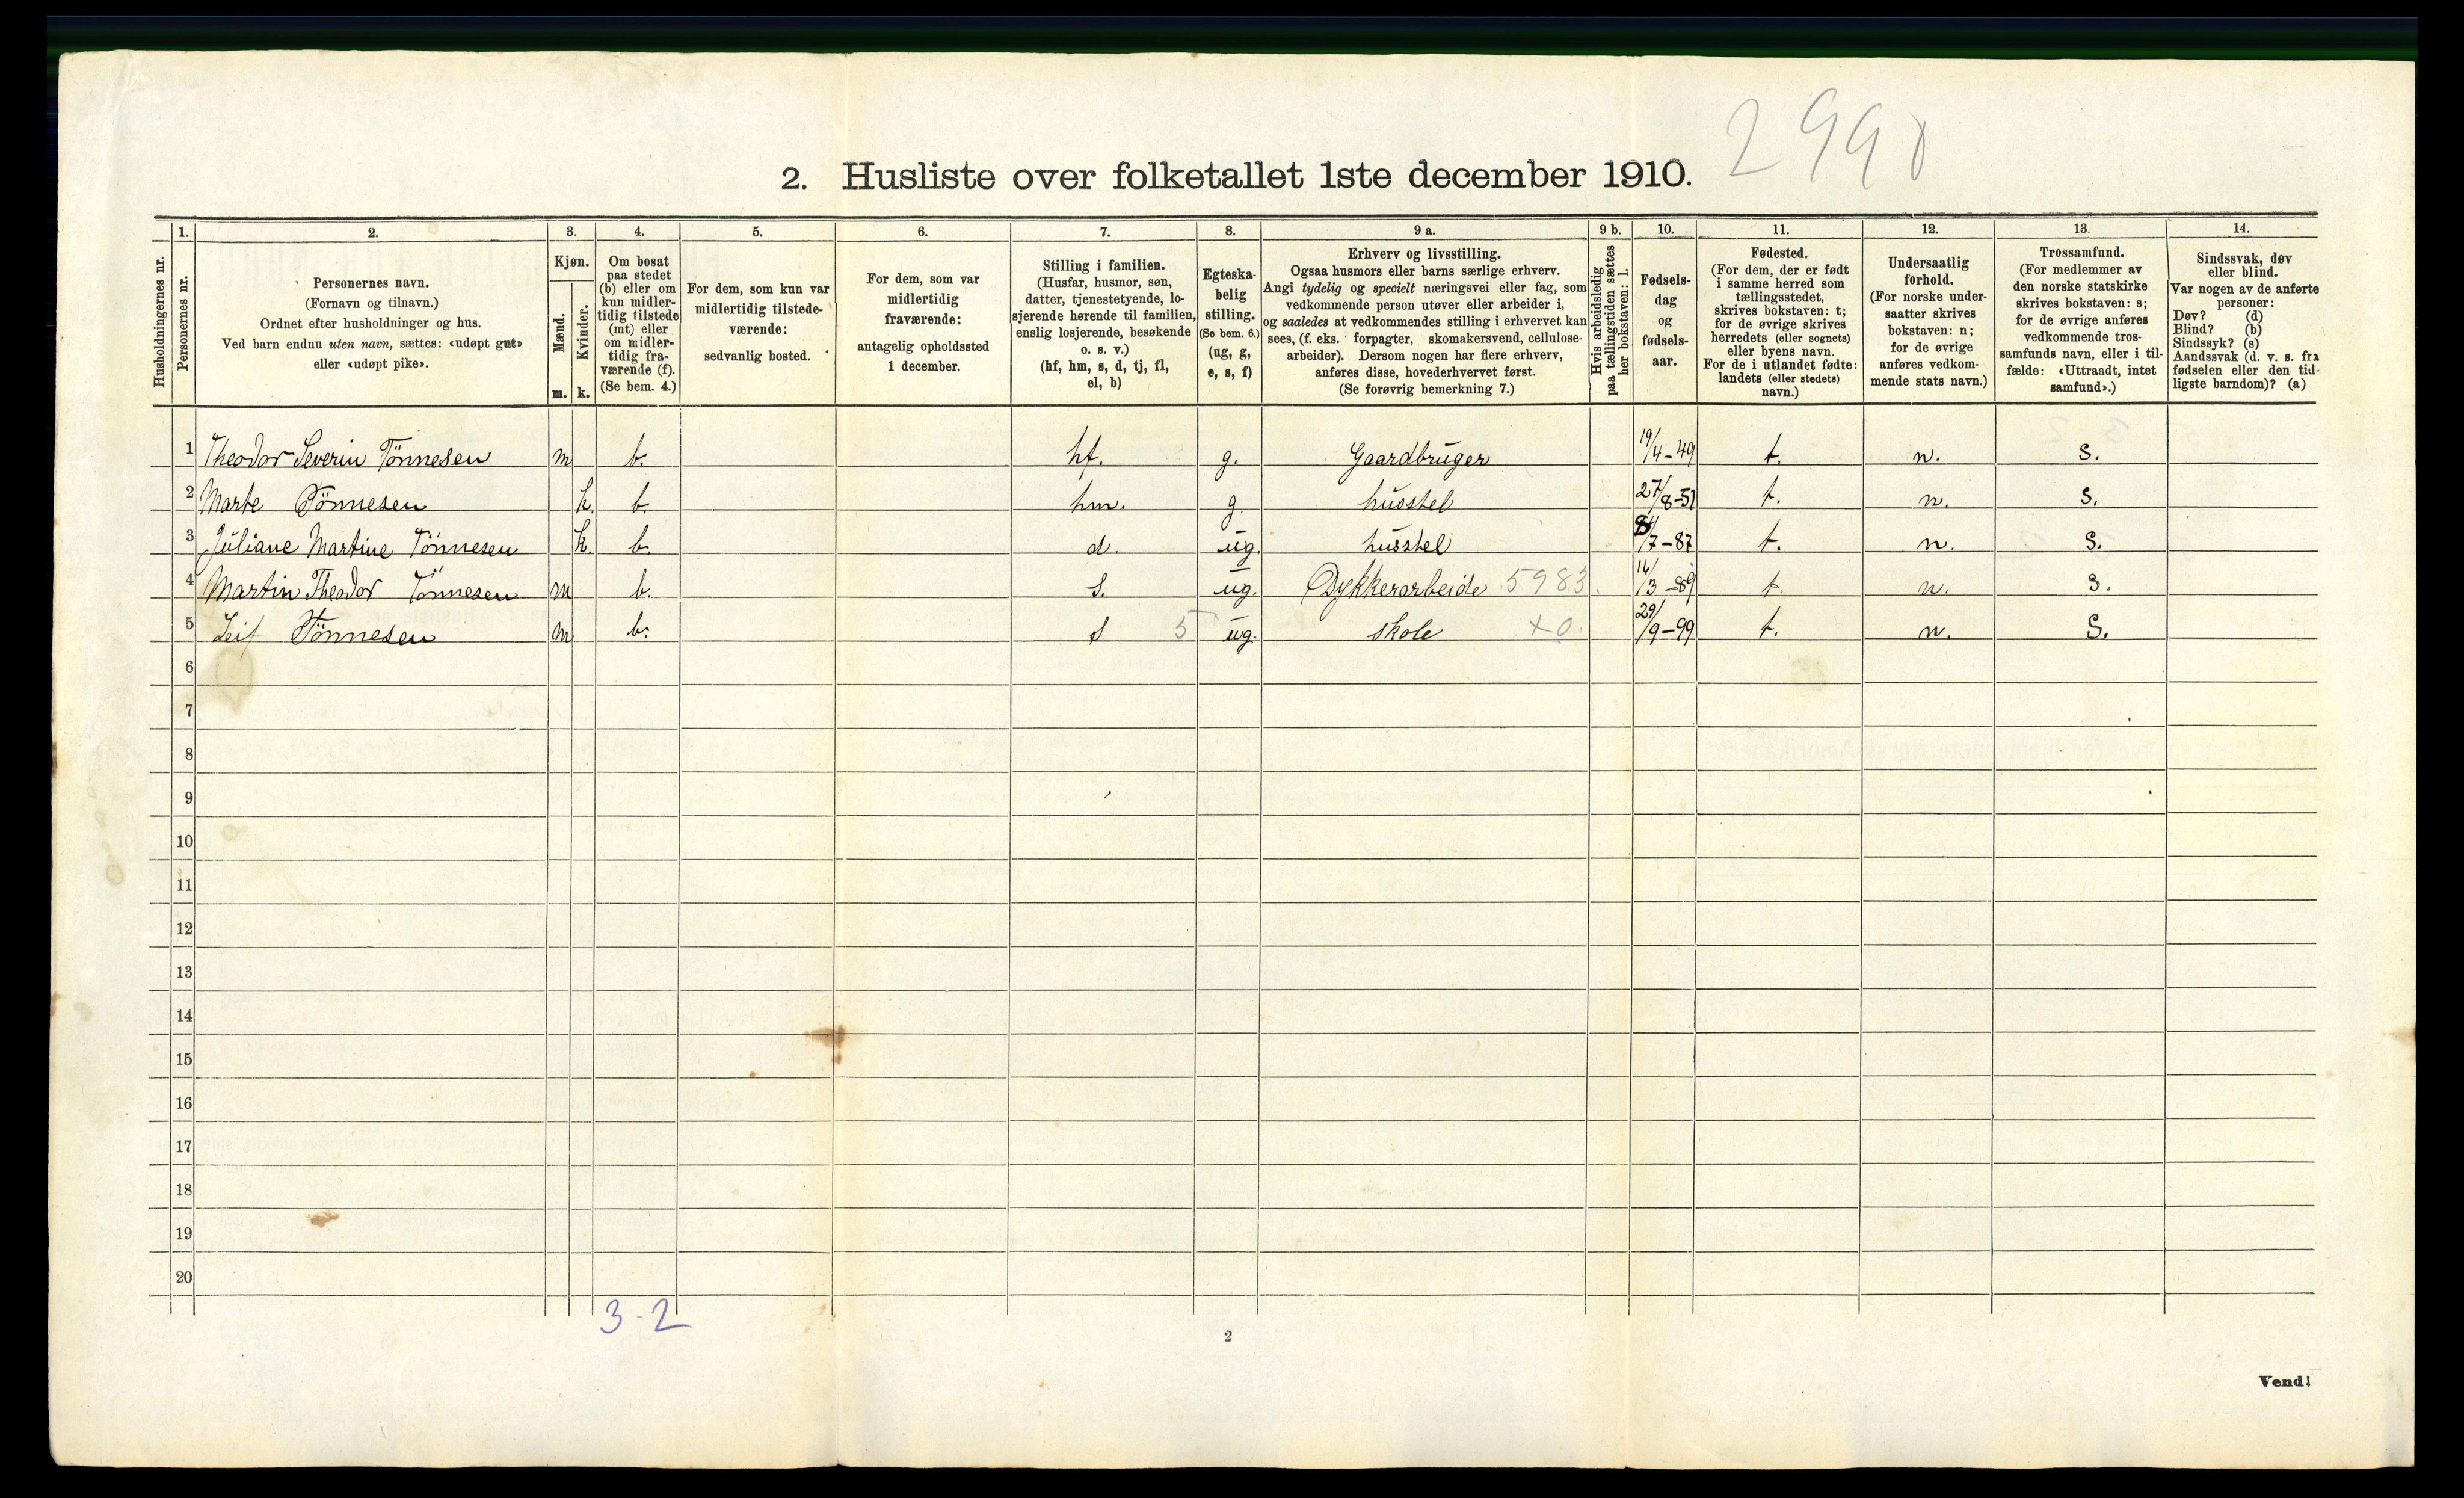 2990
2. Husliste over folketallet 1ste december 1910.
Husholdningernes nr.
1.
Personernes nr.
2.
Personernes navn.
(Fornavn og tilnavn.)
Ordnet efter husholdninger og hus.
Ved barn endnu uten navn, sættes: «udøpt gut»
eller «udøpt pike».
3.
Kjøn.
Mænd.
Kvinder.
m. k.
4.
Om bosat
paa stedet
(b) eller om
kun midler-
tidig tilstede
(mt) eller
om midler-
tidig fra-
værende (f).
(Se bem. 4.)
5.
For dem, som kun var
midlertidig tilstede-
værende:
sedvanlig bosted.
6.
For dem, som var
midlertidig
fraværende:
antagelig opholdssted
1 december.
7.
Stilling i familien.
(Husfar, husmor, søn,
datter, tjenestetyende, lo-
sjerende hørende til familien,
enslig losjerende, besøkende
o. s. v.)
(hf, hm, s, d, tj, fl,
el, b)
8.
Egteska-
belig
stilling.
(Se bem. 6.)
(ug, g,
e, s, f)
9 a.
Erhverv og livsstilling.
Ogsaa husmors eller barns særlige erhverv.
Angi tydelig og specielt næringsvei eller fag, som
vedkommende person utøver eller arbeider i,
og saaledes at vedkommendes stilling i erhvervet kan
sees, (f. eks. forpagter, skomakersvend, cellulose-
arbeider). Dersom nogen har flere erhverv,
anføres disse, hovederhvervet først.
(Se forøvrig bemerkning 7.)
9 b.
Hvis arbeidsledig
paa tællingstiden sættes
her bokstaven: l.
10.
Fødsels-
dag
og
fødsels-
aar.
11.
Fødested.
(For dem, der er født
i samme herred som
tællingsstedet,
skrives bokstaven: t;
for de øvrige skrives
herredets (eller sognets)
eller byens navn.
For de i utlandet fødte:
landets (eller stedets)
navn.)
12.
Undersaatlig
forhold.
(For norske under-
saatter skrives
bokstaven: n;
for de øvrige
anføres vedkom-
mende stats navn.)
13.
Trossamfund.
(For medlemmer av
den norske statskirke
skrives bokstaven: s;
for de øvrige anføres
vedkommende tros-
samfunds navn, eller i til-
fælde: «Uttraadt, intet
samfund».)
14.
Sindssvak, døv
eller blind.
Var nogen av de anførte
personer:
Døv? (d)
Blind? (b)
Sindssyk? (s)
Aandssvak (d. v. s. fra
fødselen eller den tid-
ligste barndom)? (a)
1 Theodor Severin Tönnesen m b. hf. g. Gaardbruger 19/4-49 t. n. s.
2 Marte Tönnesen k. b. hm. g. husstel 27/8-51 t. n. s.
3 Juliane Martine Tönnesen k. b. d. ug. husstel /7-87 t. n. s.
4 Martin Theodor Tönnesen m b. s. ug. Dykkerarbeide 5983. 16/3-89 t. n. s.
5 Leif Tönnesen m b. s 5 ug. skole x0. 29/9-99 t. n. S.
6
7
8
9
10
11
12
13
14
15
16
17
18
19
20
3-2
2
Vend!